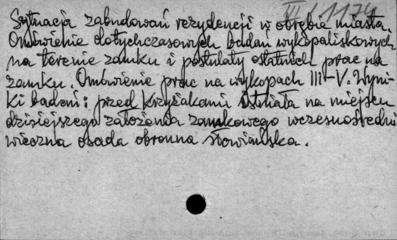 III/1174
Sytuacja zabudowań rezydencji w obrębie miasta.
Omówienie dotychczasowych badań wykopaliskowych
na terenie zamku i postulaty ostatnich prac na
zamku. Omówienie prac na wykopach III-V. Wyni-
ki badań: przed Krzyżakami istniała na miejscu
dzisiejszego założenia zamkowego wczesnośredni
wieczna osada obronna słowiańska.